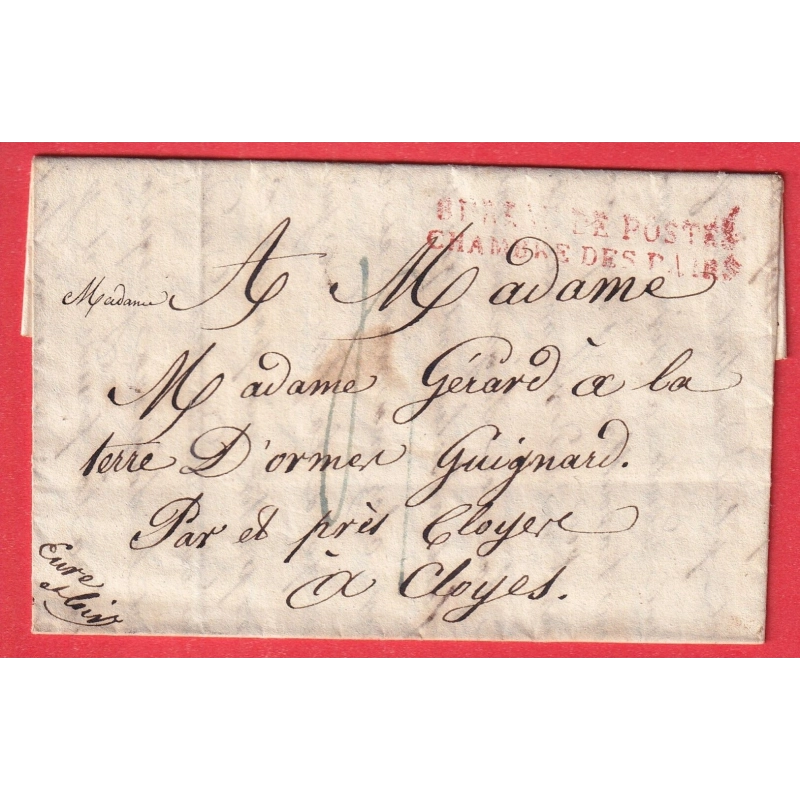 BUREAU DE POSTES
CHAMBRE DES PAIRS
Madame
A Madame
Madame Gérard à la
terre D'ormes Guignard.
Par et près Cloyes
à Cloyes.
Eure
et Loir